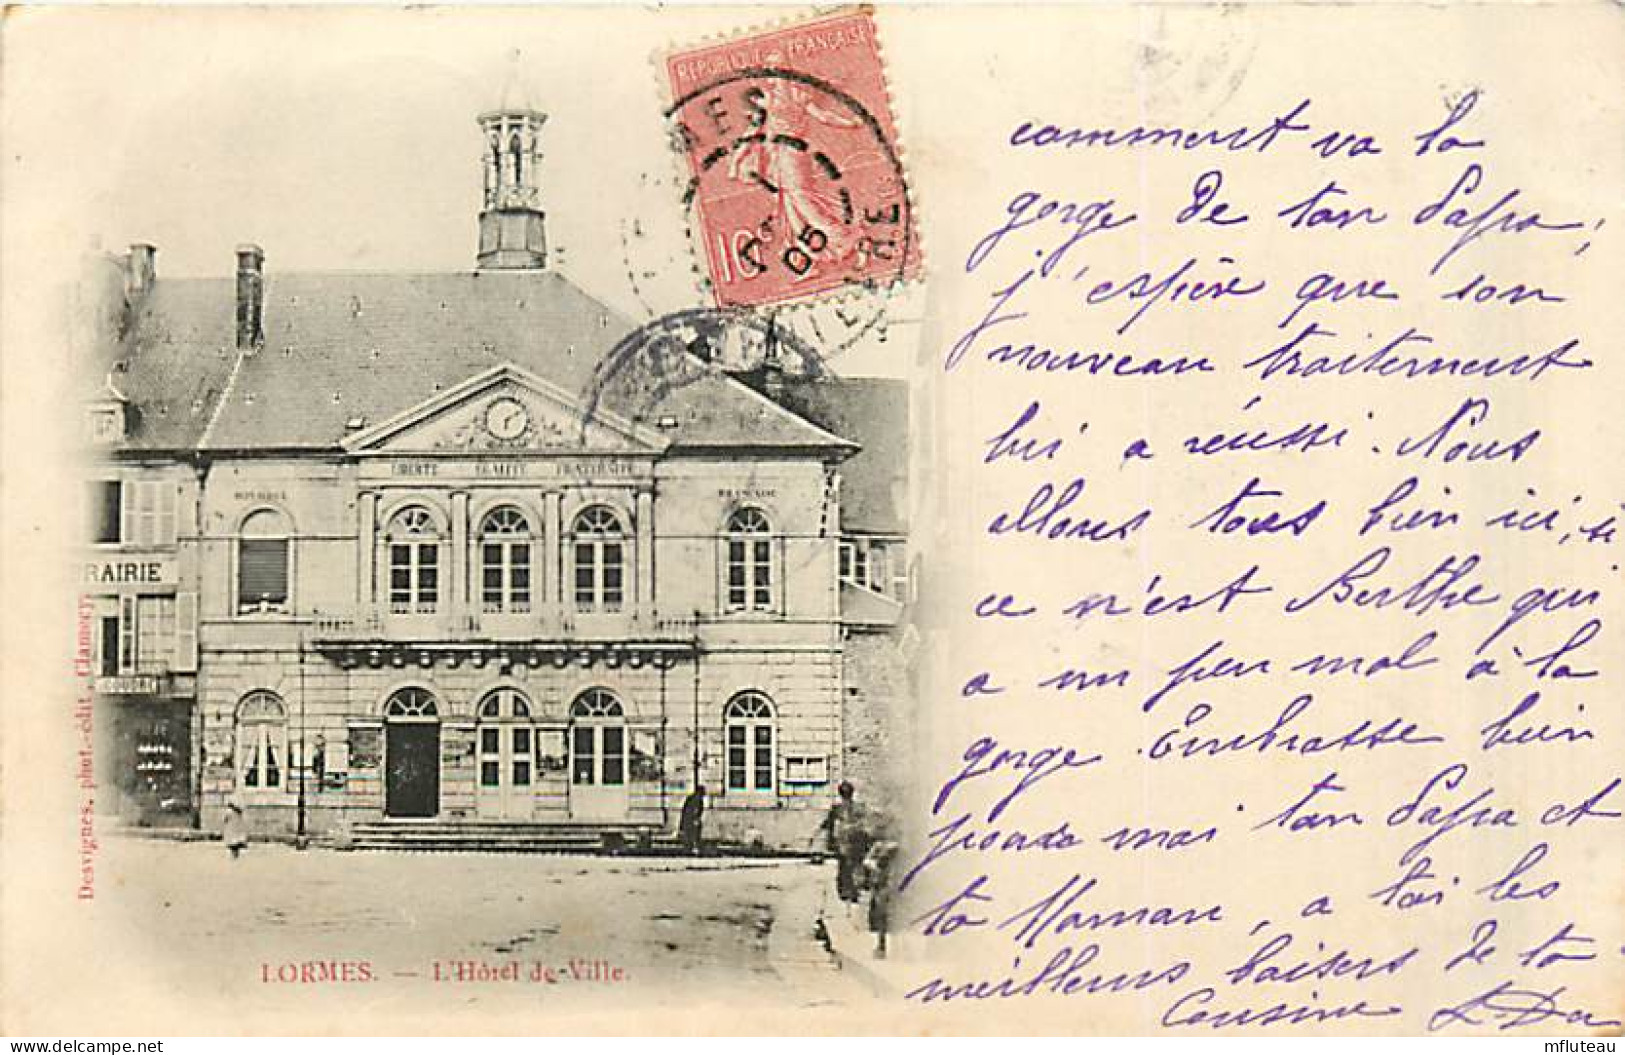 RÉPUBLIQUE FRANÇAISE
MES
7
05
10c
LIBERTÉ ÉGALITÉ FRATERNITÉ
RAIRIE
Desvignes, phot.-édit., Clamecy.
LORMES. — L'Hôtel de Ville.
comment va la
gorge de ton Papa,
j'espère que son
nouveau traitement
lui a réussi. Nous
allons tous bien ici, si
ce n'est Berthe qui
a un peu mal à la
gorge. Embrasse bien
pour moi ton Papa et
ta Maman, a toi les
meilleurs baisers de ta
Cousine
mfluteau